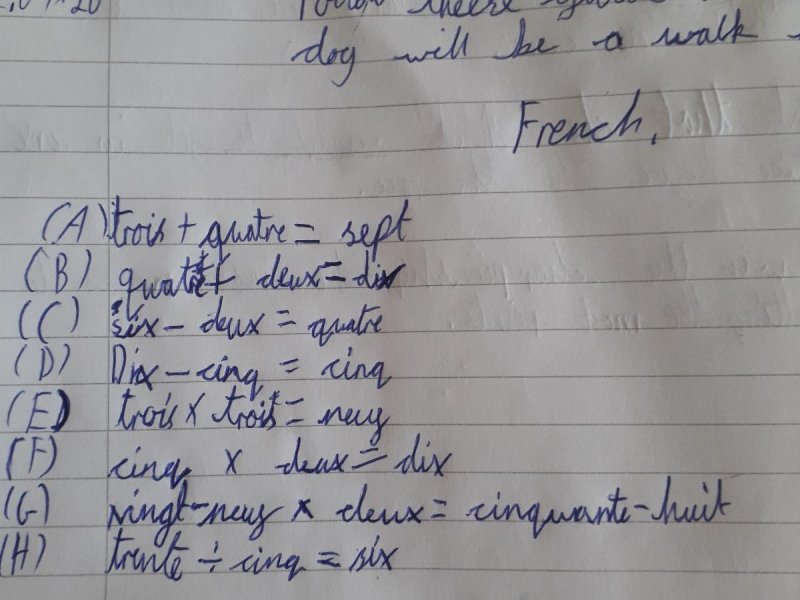 dog will be a walk
French.
(A) trois + quatre = sept
(B) deux = dix
(C) six - deux = quatre
(D) Dix - cinq = cinq
(E) trois x trois = neuf
(F) cinq x deux = dix
(G) vingt-neuf x deux = cinquante-huit
(H) trente ÷ cinq = six